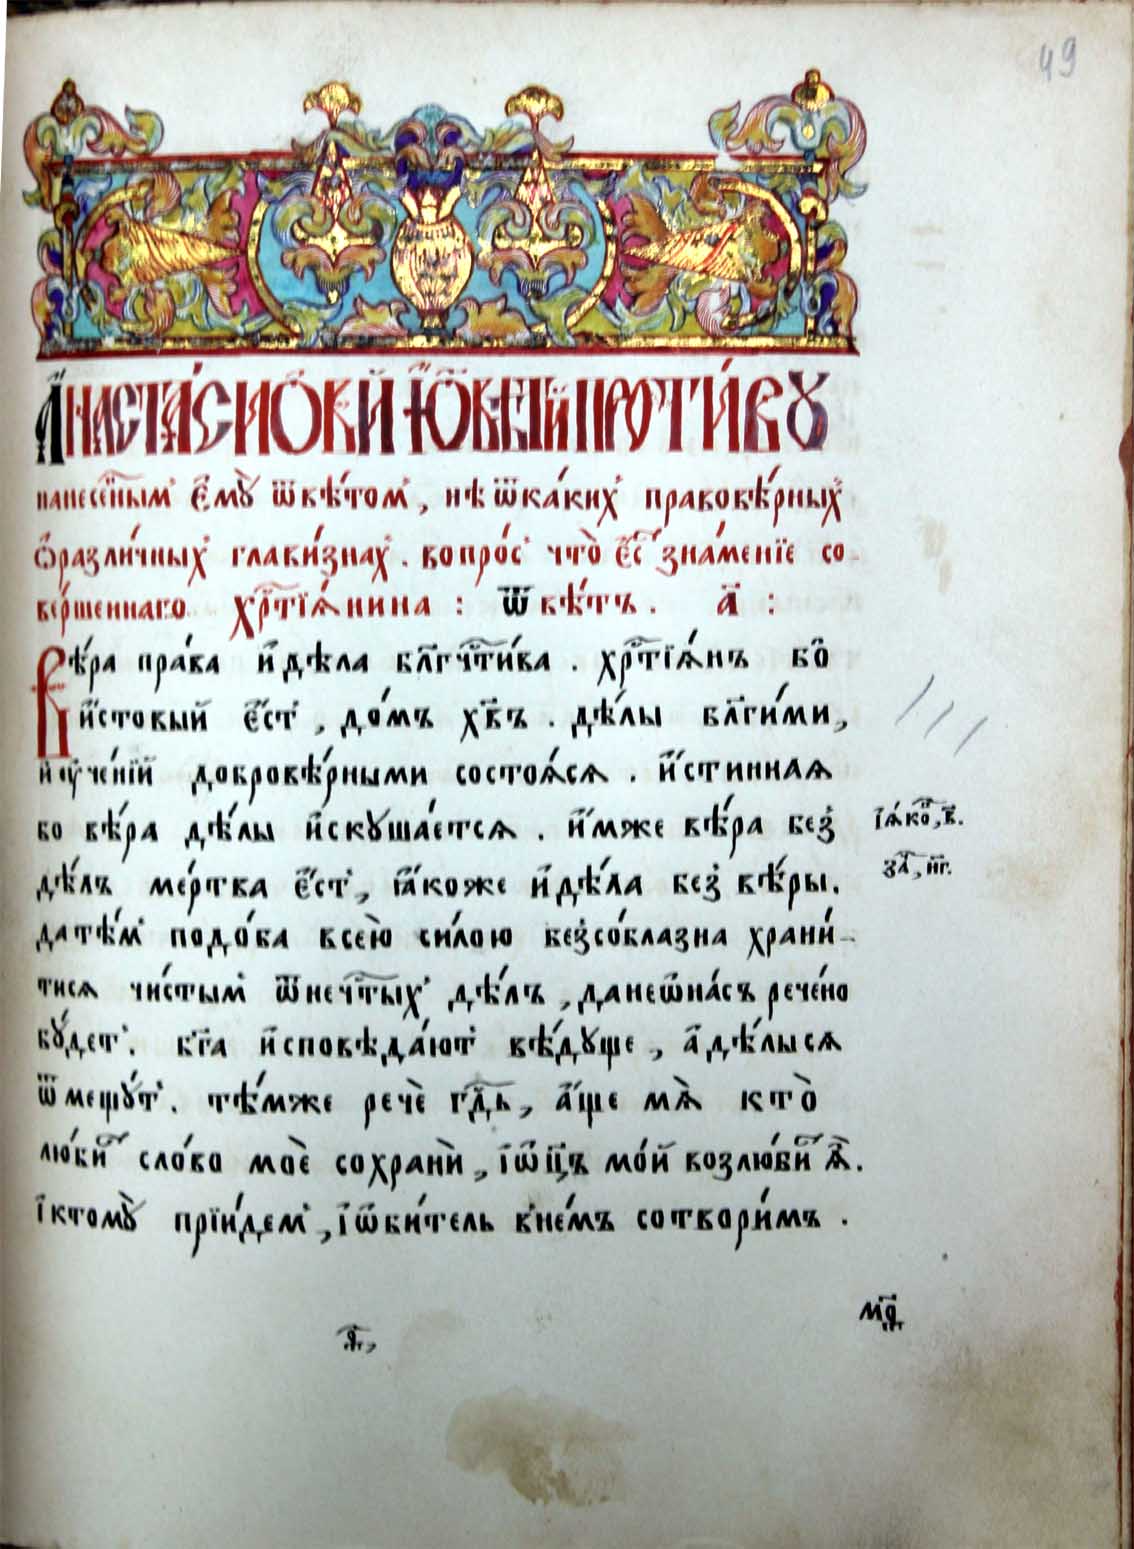 49
А҆наста́сиѻви ю҆ ѿвѣ́ти проти́вꙋ
нанесе́нымъ є҆мꙋ̀ ѿвѣ́томъ, нѣѿка́кихъ правовѣ́рныхъ
ѡ҆разли́чныхъ глави́знахъ. вопро́съ что̀ є҆́сть зна́менїе со-
ве́ршеннаго хрⷭ҇тїѧнина : Ѿвѣ́тъ. а҃ :
Вѣ́ра пра́ва и҆дѣ́ла бл҃гчⷭ҇ти́ва. хрⷭ҇тїѧ́нъ бо
и҆́стовый є҆́стъ, до́мъ хв҃ъ. дѣ́лы бл҃ги́ми,
и҆ᲂу҆че́нїй добровѣ́рными состоѧ́сѧ. и҆́стиннаѧ
бо вѣ́ра дѣ́лы и҆скꙋша́етсѧ. и҆́мже вѣ́ра без̾
дѣ́лъ ме́ртва є҆́стъ, ꙗ҆́коже и҆дѣ́ла без̾ вѣ́ры.
датѣ́мъ подо́ба всею́ си́лою без̾собла́зна храни́-
тисѧ чи́стымъ ѿнечⷭ҇тыхъ дѣ́лъ, данеѡ҆на́съ рече́но
бꙋ́детъ. бг҃а и҆сповѣда́ютъ вѣ́дꙋще, а҆дѣ́лысѧ
ѿмещꙋ́тъ. тѣ́мже речѐ гдⷭ҇ь, а҆́ще мѧ̀ кто̀
лю́битъ сло́во моѐ сохрани́, і҆ѻ҆ц҃ъ мо́й возлю́битъ ѧ҆̀.
і҆ктомꙋ̀ прїи́демъ, і҆ѡ҆би́тель в̾не́мъ сотвори́мъ.
і҆ѧ́ко, в҃.
за, н҃г.